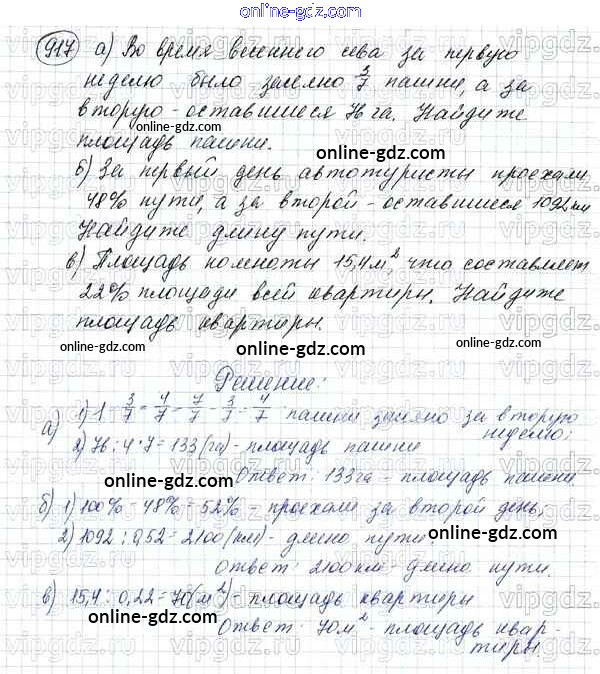 online-gdz.com
917 а) Во время весеннего сева за первую
неделю было засеяно 3/7 пашни, а за
вторую - оставшиеся 76 га. Найдите
площадь пашни.
online-gdz.com
online-gdz.com
б) За первый день автотуристы проехали
48% пути, а за второй - оставшиеся 1092 км
online-gdz.com
Найдите длину пути.
в) Площадь комнаты 15,4 м², что составляет
22% площади всей квартиры. Найдите
площадь квартиры.
online-gdz.com
online-gdz.com
Решение:
а) 1) 1 - 3/7 = 4/7 = 7/7 - 3/7 = 4/7 пашни засеяно за вторую
неделю;
2) 76 : 4 · 7 = 133 (га) - площадь пашни
online-gdz.com
Ответ: 133 га - площадь пашни
б) 1) 100% - 48% = 52% - проехали за второй день;
online-gdz.com
2) 1092 : 0,52 = 2100 (км) - длина пути
online-gdz.com
Ответ: 2100 км - длина пути.
в) 15,4 : 0,22 = 70 (м²) - площадь квартиры
online-gdz.com
Ответ: 70 м² - площадь квар-
тиры.
online-gdz.com
vipgdz.com